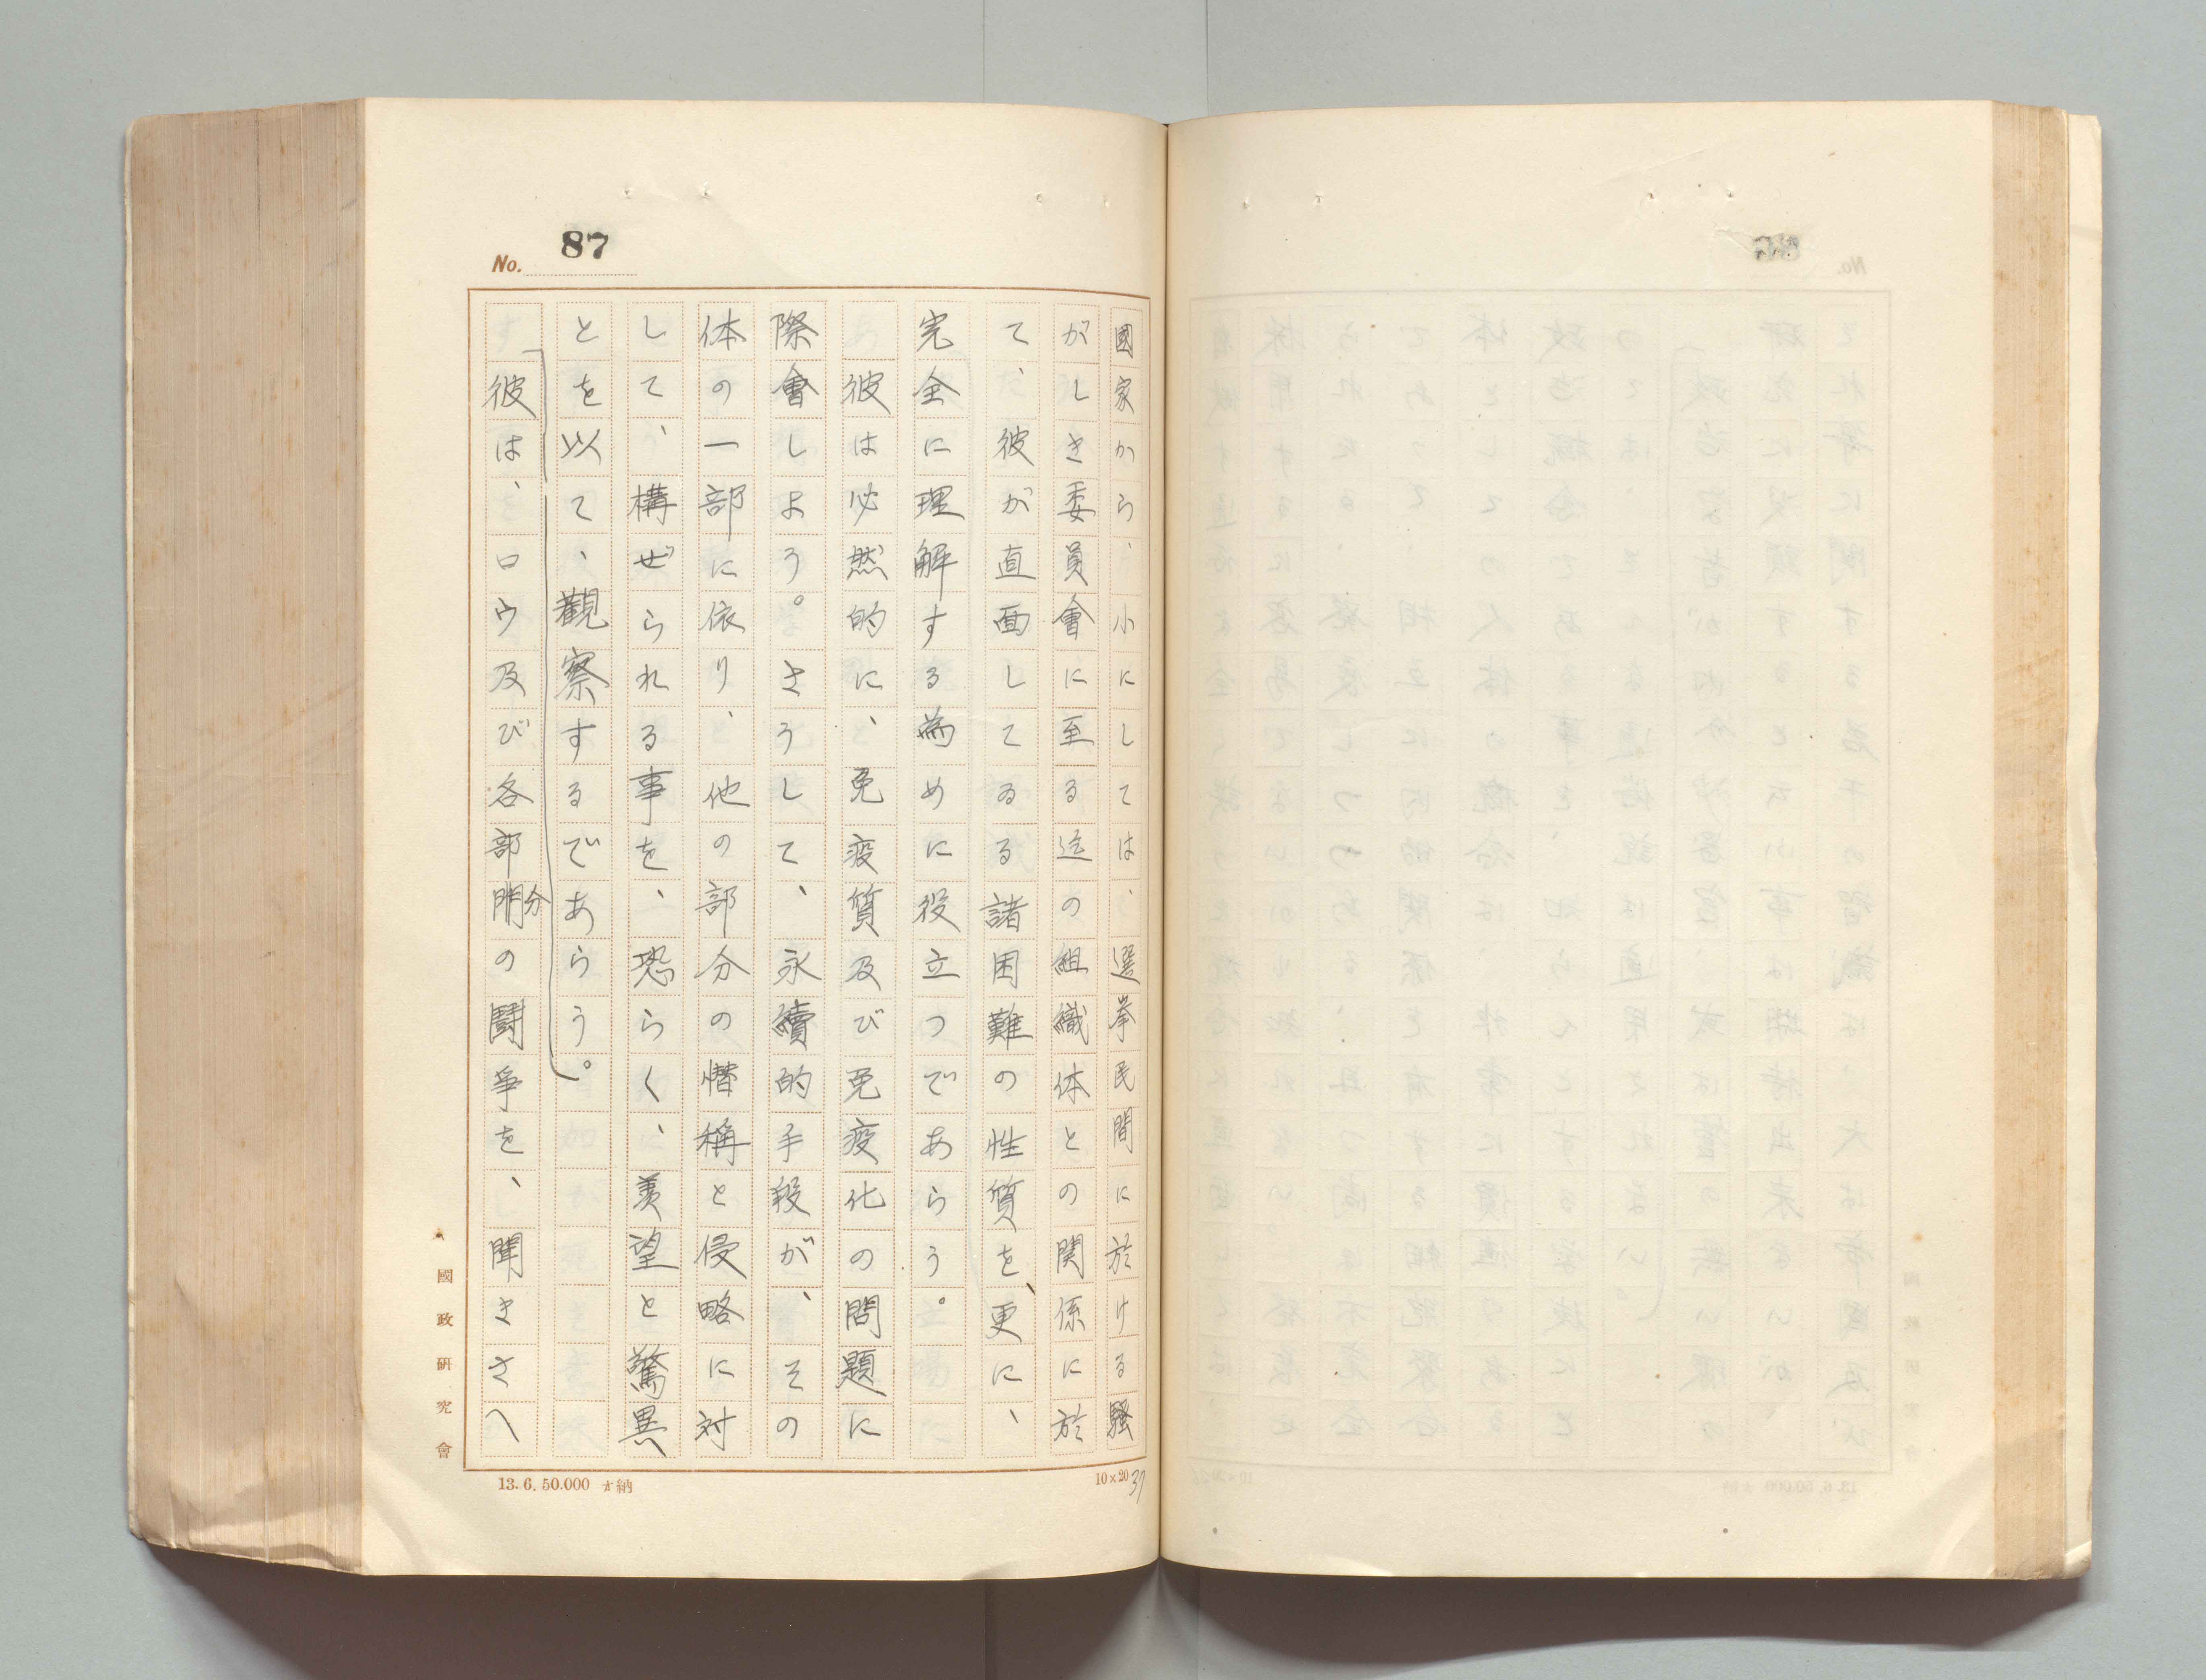 No. 87
國家から、小にしては、選挙民間に於ける騒
がしき委員會に至る迄の組織体との関係に於
て、彼が直面してゐる諸困難の性質を、更に、
完全に理解する為めに役立つであらう。
彼は必然的に、免疫質及び免疫化の問題に
際會しよう。さうして、永續的手段が、その
体の一部に依り、他の部分の僭稱と侵略に対
して、構ぜられる事を、恐らく、羨望と驚異
とを以て、觀察するであらう。
彼は、ロウ及び各部分の鬪爭を、聞きさへ
國政研究會
13.6.50.000 納
10×20
37